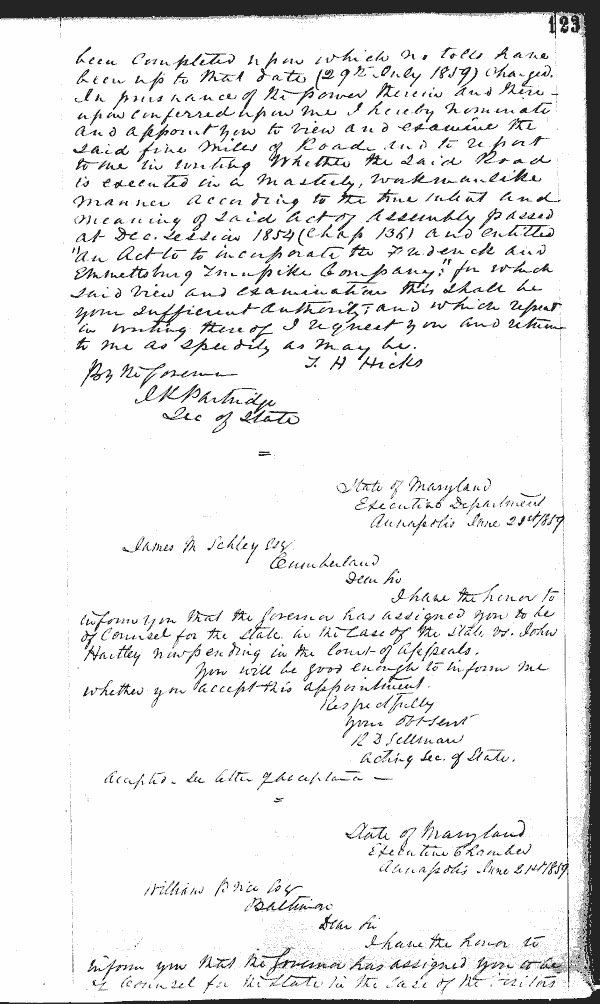 123
been completed upon which no tolls have
been up to that date (29th July 1859) charged.
In pursuance of the power therein and there-
upon conferred upon me I hereby nominate
and appoint you to view and examine the
said five miles of Road and to report
to me in writing whether the said Road
is executed in a masterly, workmanlike
manner according to the true intent and
meaning of said Act of Assembly passed
at Dec. session 1854 (Chap 136) and entitled
"an Act to to incorporate the Frederick and
Emmettsburg Turnpike Company:" for which
said view and examination this shall be
your sufficient authority; and which report
in writing thereof I request you and return
to me as speedily as may be.
T. H Hicks
By the Governor
J.R Partridge
Sec of State
=
State of Maryland
Executive Department
Annapolis June 21st 1859
James M Schley Esq
Cumberland
Dear Sir
I have the honor to
inform you that the Governor has assigned you to be
of Counsel for the State in the Case of the State vs. John
Hartley now pending in the Court of Appeals.
You will be good enough to inform me
whether you accept this appointment.
Respectfully
your obt sevt
R D Sellman
Acting Sec. of State.
Accepted - See letter of acceptance —
=
State of Maryland
Executive Chamber
Annapolis June 21st 1859
William Price Esq
Baltimore
Dear Sir
I have the honor to
inform you that the Governor has assigned you to be
of Counsel for the State in the Case of the Visitors